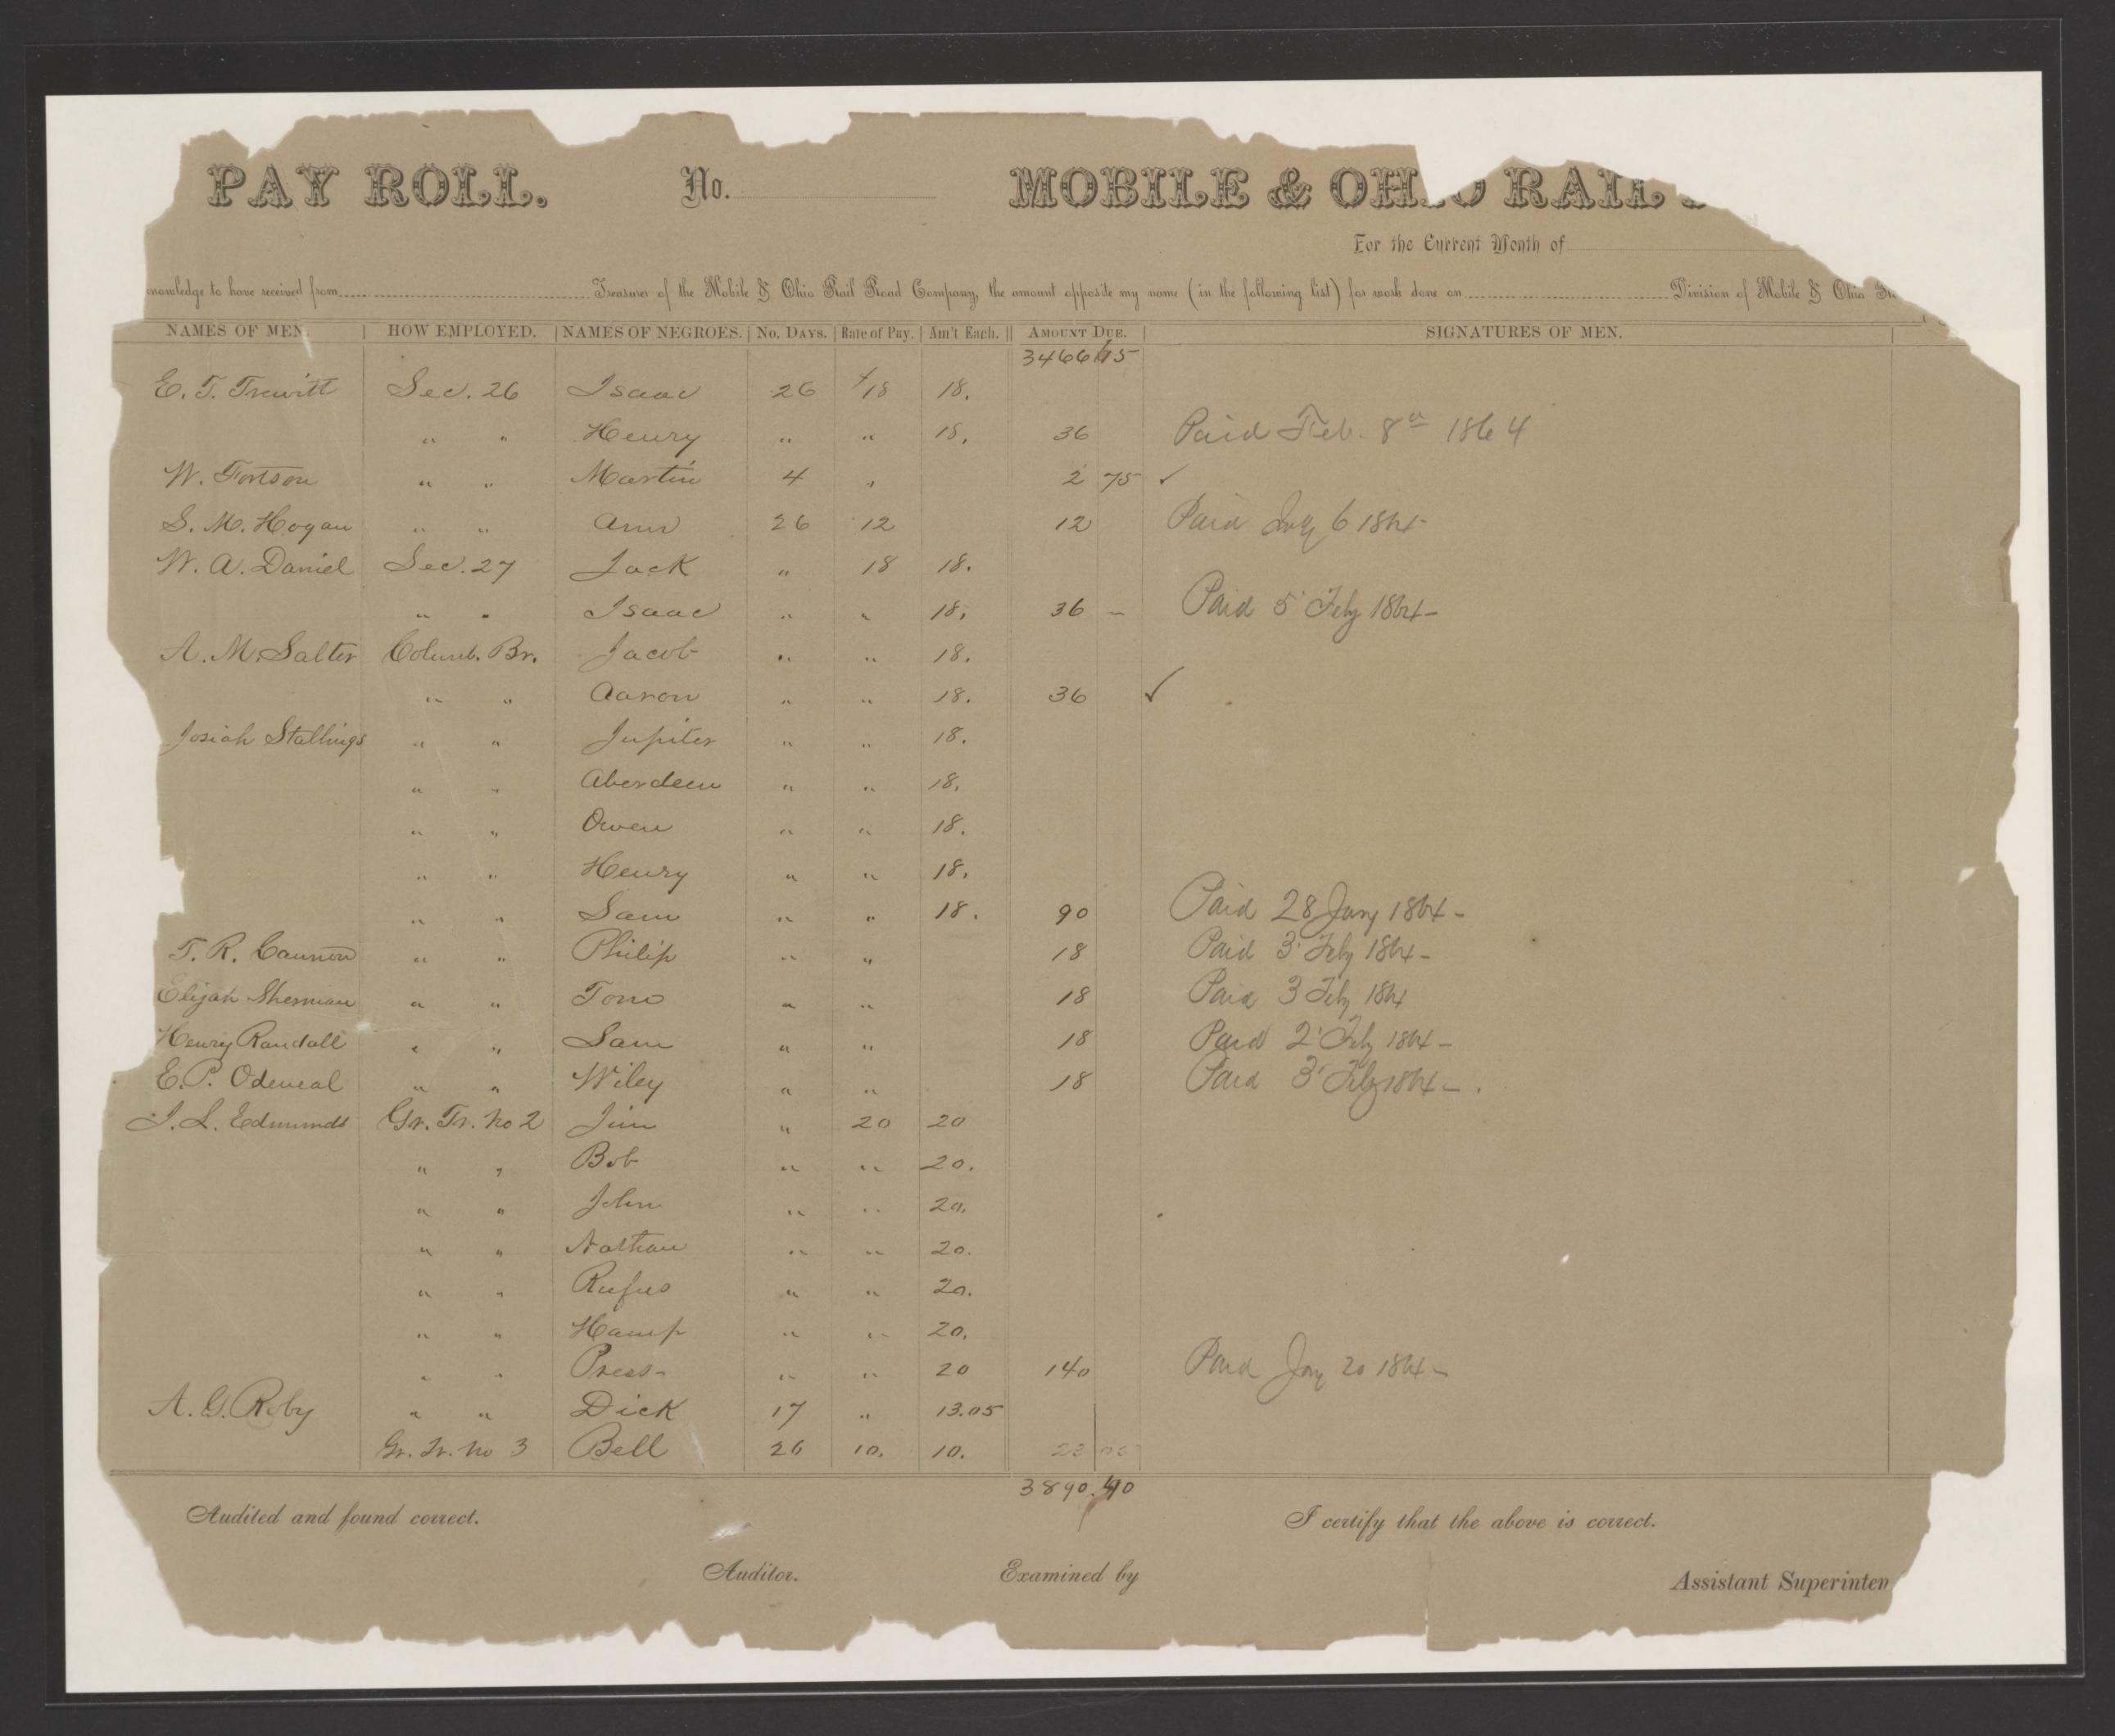 PAY ROLL. No. MOBILE & OHIO RAIL
For the Current Month of
nowledge to have received from Treasurer of the Mobile & Ohio Rail Road Company, the amount opposite my name (in the following list) for work done on Division of Mobile & Ohio
NAMES OF MEN. HOW EMPLOYED. NAMES OF NEGROES. No. DAYS. Rate of Pay. Am't Each. AMOUNT DUE. SIGNATURES OF MEN.
3466
E. T. Trewitt Sec. 26 Isaac 26 18 18.
" " Henry " " 18. 36 Paid Feb. 8th 1864
W. Fortson " " Martin 4 " 2 75 ✓
S. M. Hogan " " Ann 26 12 12 Paid 6 1864-
W. A. Daniel Sec. 27 Jack " 18 18.
" " Isaac " " 18. 36 – Paid 5 Feby 1864-
A. M. Salter Columb. Br. Jacob " " 18.
" " Aaron " " 18. 36 ✓
Josiah Stallings " " Jupiter " " 18.
" " Aberdeen " " 18.
" " Owen " " 18.
" " Henry " " 18.
" " Sam " " 18. 90 Paid 28 Jany 1864-
T. R. Cannon " " Philip " " 18 Paid 3 Feby 1864-
Elijah Sherman " " Tom " " 18 Paid 3 Feby 1864
Henry Randall " " Sam " " 18 Paid 2 Feby 1864-
E. P. Odeneal " " Wiley " " 18 Paid 3 Feby 1864-.
J. L. Edmunds Gr. Tr. No 2 Jim " 20 20
" " Bob " " 20.
" " John " " 20.
" " Nathan " " 20.
" " Rufus " " 20.
" " Hamp " " 20.
" " Press- " " 20 140 Paid Jany 20 1864-
A. G. Roby " " Dick 17 " 13.05
Gr. Tr. No 3 Bell 26 10. 10. 23 05
3890.40
Audited and found correct. I certify that the above is correct.
Auditor. Examined by Assistant Superinten